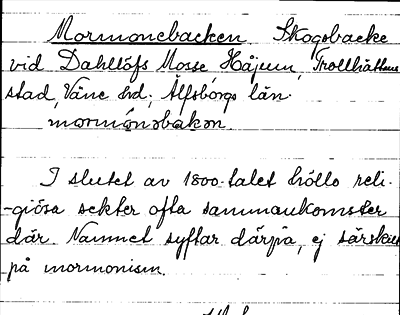 Mormonebacken Skogsbacke
vid Dahllöfs Mosse Håjum, Trollhättans
stad, Väne hd; Älfsborgs län.
mormónəbàkən.
I slutet av 1800-talet höllo reli-
-giösa sekter ofta sammankomster
där. Namnet syftar därpå, ej särskilt
på mormonism.